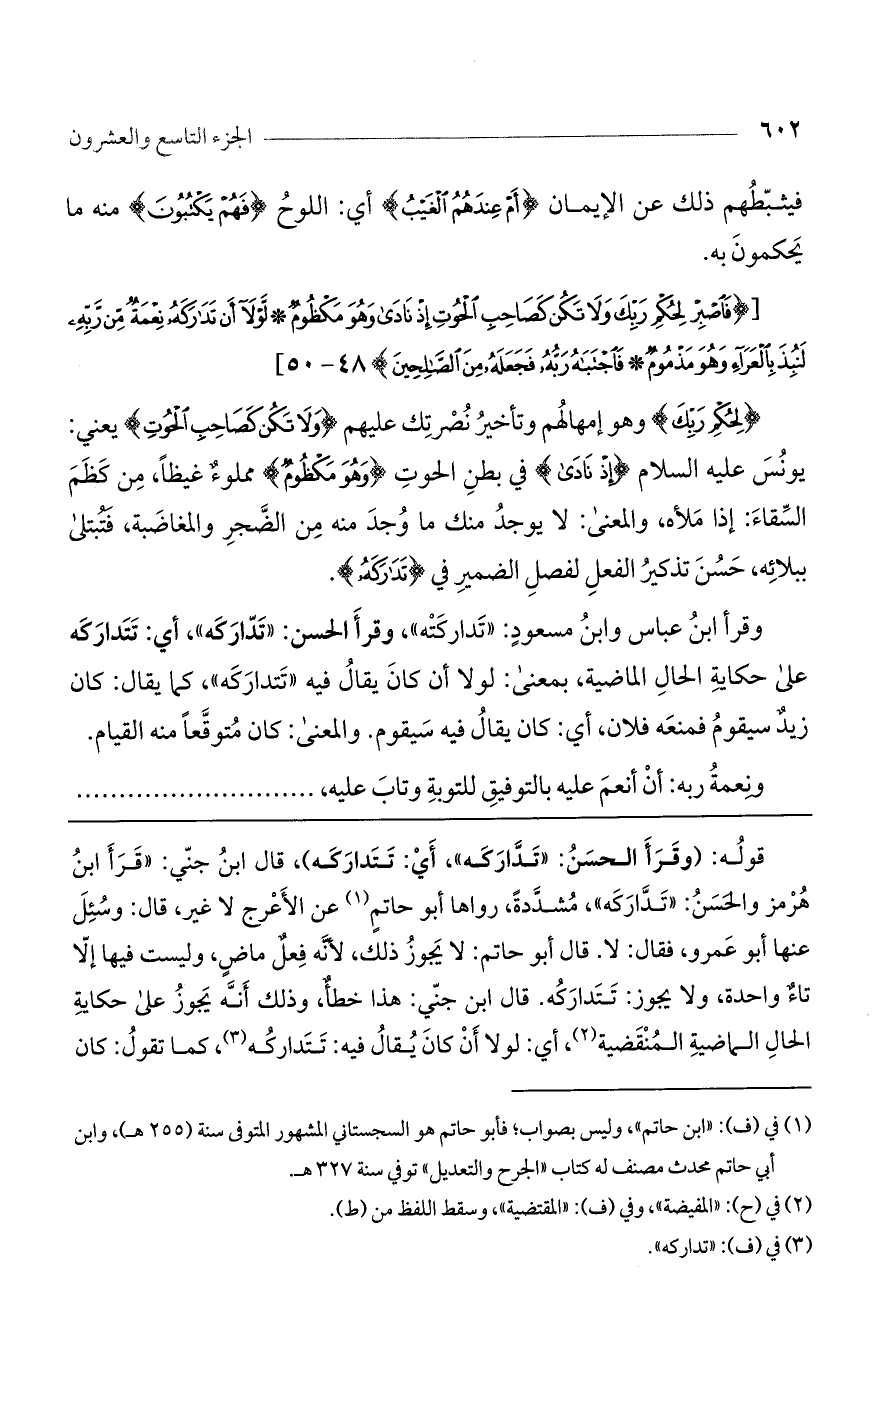 ٦٠٢ الجزء التاسع والعشرون
فيثبّطُهم ذلك عن الإيمـان ﴿أَمْ عِندَهُمُ ٱلْغَيْبُ﴾ أي: اللوحُ ﴿فَهُمْ يَكْتُبُونَ﴾ منه ما
يَحكمونَ به.
[﴿فَٱصْبِرْ لِحُكْمِ رَبِّكَ وَلَا تَكُن كَصَاحِبِ ٱلْحُوتِ إِذْ نَادَىٰ وَهُوَ مَكْظُومٌ * لَّوْلَآ أَن تَدَٰرَكَهُۥ نِعْمَةٌ مِّن رَّبِّهِۦ
لَنُبِذَ بِٱلْعَرَآءِ وَهُوَ مَذْمُومٌ * فَٱجْتَبَٰهُ رَبُّهُۥ فَجَعَلَهُۥ مِنَ ٱلصَّٰلِحِينَ﴾ ٤٨ - ٥٠]
﴿لِحُكْمِ رَبِّكَ﴾ وهو إمهالُهم وتأخيرُ نُصْرتِك عليهم ﴿وَلَا تَكُن كَصَاحِبِ ٱلْحُوتِ﴾ يعني:
يونُسَ عليه السلام ﴿إِذْ نَادَىٰ﴾ في بطنِ الحوتِ ﴿وَهُوَ مَكْظُومٌ﴾ مملوءٌ غيظاً، مِن كَظَمَ
السِّقاءَ: إذا مَلأه، والمعنىٰ: لا يوجدُ منك ما وُجدَ منه مِن الضَّجرِ والمغاضَبة، فَتُبتلىٰ
ببلائِه، حَسُنَ تذكيرُ الفعلِ لفصلِ الضميرِ في ﴿تَدَٰرَكَهُۥ﴾.
وقرأ ابنُ عباس وابنُ مسعودٍ: «تَداركَتْه»، وقرأَ الحسن: «تَدّارَكَه»، أي: تَتَدارَكه
علىٰ حكايةِ الحالِ الماضية، بمعنىٰ: لولا أن كانَ يقالُ فيه «تَتدارَكَه»، كما يقال: كان
زيدٌ سيقومُ فمنعَه فلان، أي: كان يقالُ فيه سَيقوم. والمعنىٰ: كان مُتوقَّعاً منه القيام.
ونِعمةُ ربه: أنْ أنعمَ عليه بالتوفيقِ للتوبةِ وتابَ عليه، ............................
قولُـه: (وقَـرَأَ الـحسَنُ: «تَـدَّارَكَـه»، أَيْ: تَـتَدارَكَـه)، قال ابنُ جنّي: «قَـرَأَ ابنُ
هُرْمز والحَسَنُ: «تَـدَّارَكَه»، مُشـدَّدةً، رواها أبو حاتمٍ(١) عن الأَعْرج لا غير، قال: وسُئِلَ
عنها أبو عَمرو، فقال: لا. قال أبو حاتم: لا يَجوزُ ذلك، لأنَّه فِعلٌ ماضٍ، وليست فيها إلّا
تاءٌ واحدة، ولا يجوز: تَـتدارَكُه. قال ابن جنّي: هذا خطأٌ، وذلك أنَّـه يَجوزُ علىٰ حكايةِ
الحالِ الـماضيةِ الـمُنْقَضية(٢)، أي: لو لا أَنْ كانَ يُـقالُ فيه: تَـتَداركُـه(٣)، كمـا تقولُ: كان
(١) في (ف): «ابن حاتم»، وليس بصواب؛ فأبو حاتم هو السجستاني المشهور المتوفى سنة (٢٥٥ هـ)، وابن
أبي حاتم محدث مصنف له كتاب «الجرح والتعديل» توفي سنة ٣٢٧ هـ.
(٢) في (ح): «المفيضة»، وفي (ف): «المقتضية»، وسقط اللفظ من (ط).
(٣) في (ف): «تداركه».